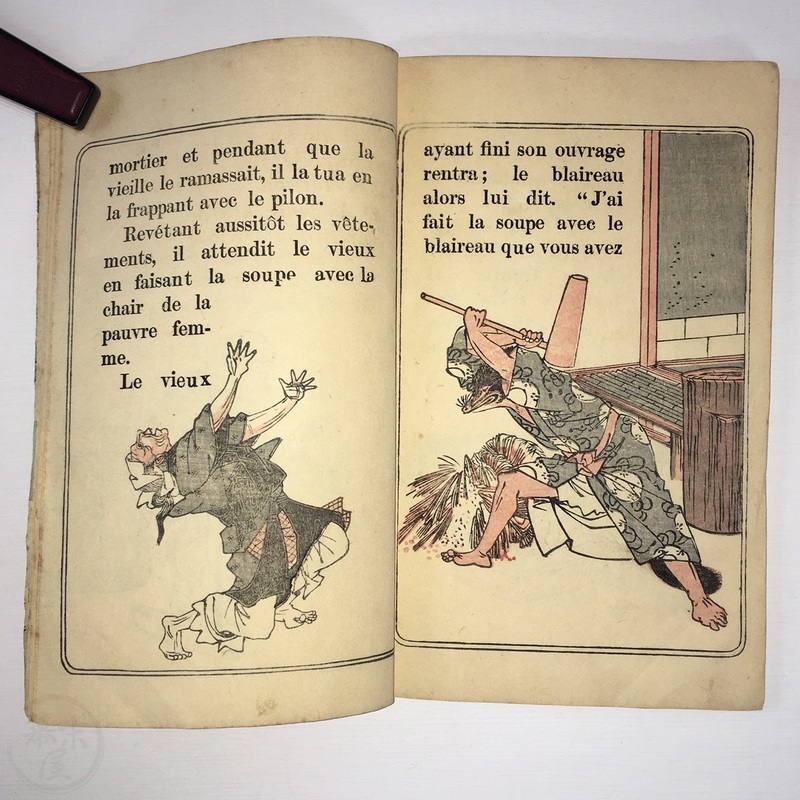 mortier et pendant que la
vieille le ramassait, il la tua en
la frappant avec le pilon.
Revétant aussitôt les vête-
ments, il attendit le vieux
en faisant la soupe avec la
chair de la
pauvre fem-
me.
Le vieux
ayant fini son ouvrage
rentra; le blaireau
alors lui dit. “J'ai
fait la soupe avec le
blaireau que vous avez